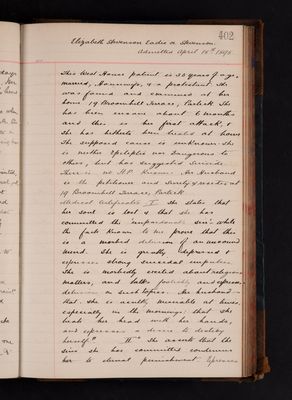 402
Elizabeth Stevenson Eadie or Stevenson.
Admitted April 16th 1898.
This West House patient is 38 years of age,
married, Housewife, & a protestant. She
was found and examined at her
home 19 Broomhill Terrace, Partick. She
has been insane about 6 months
and this is her first attack, &
She has hitherto been treated at home
The supposed cause is unknown. She
is neither Epileptic nor dangerous to
others, but has suggested Suicide.
There is no H.P. known. Her Husband
is the petitioner and resides at
19 Broomhill Terrace, Partick
Medical Certificates I She states that
her soul is lost & that she has
committed the unpardonable sin: while
the facts known to me prove that this
is a morbid delusion of an unsound
mind. She is greatly depressed &
expresses strong suicidal impulses
She is morbidly excited about religious
matters, and talks foolishly and
delusions on such topics. Her husband
that. She is acutely miserable at times,
especially in the mornings: that she
beats her head with her hands,
and expresses a desire to destroy
herself." II" She asserts that the
sins she has committed condemns
her to eternal punishment. Expresses